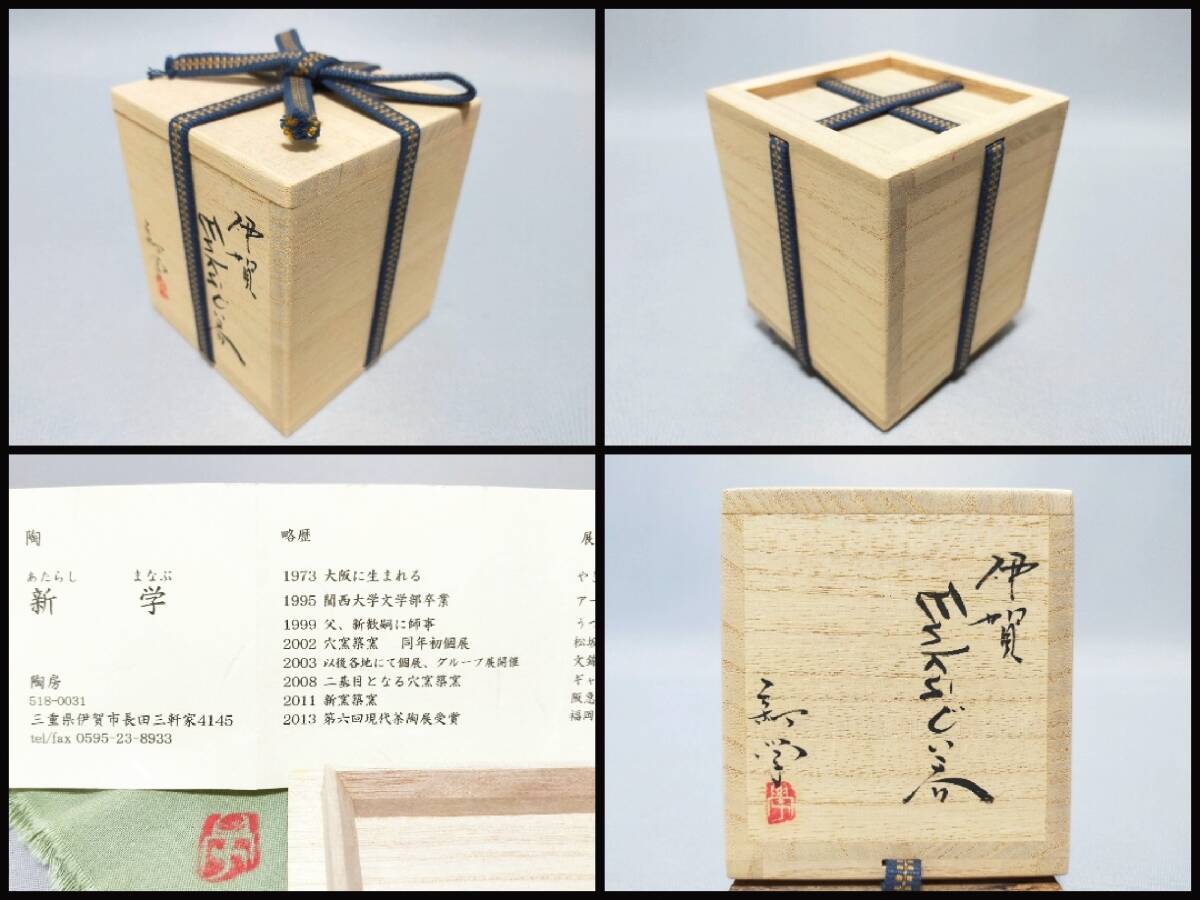 伊賀
新学
陶
あたらし まなぶ
新 学
陶房
518-0031
三重県伊賀市長田三軒家4145
tel/fax 0595-23-8933
略歴
1973 大阪に生まれる
1995 関西大学文学部卒業
1999 父、新歓嗣に師事
2002 穴窯築窯 同年初個展
2003 以後各地にて個展、グループ展開催
2008 二基目となる穴窯築窯
2011 新窯築窯
2013 第六回現代茶陶展受賞
展
や
ア
う
松坂
文錦
ギャ
阪急
福岡
伊賀
ぐい呑
新学
學